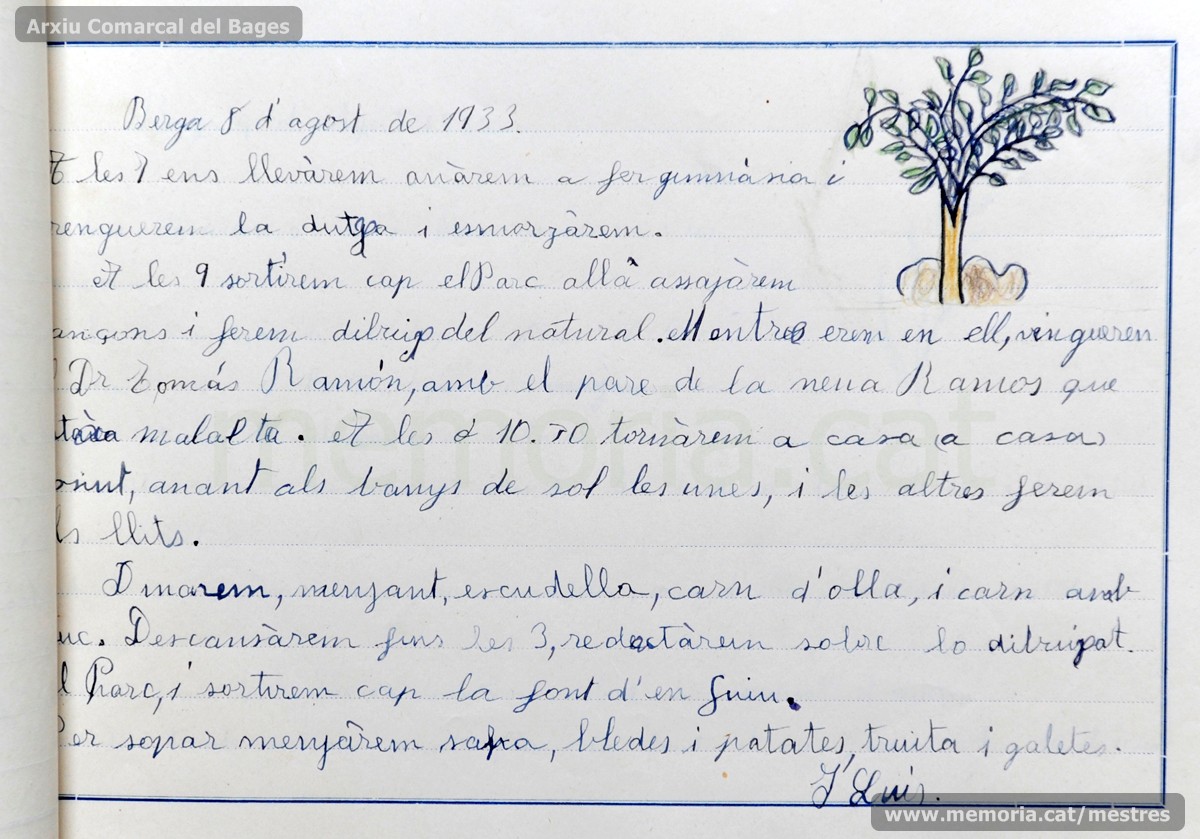 Arxiu Comarcal del Bages
Berga 8 d'agost de 1933.
A les 7 ens llevàrem anàrem a fer gimnàsia i
renguerem la dutxa i esmorzàrem.
A les 9 sortirem cap el Parc allà assajàrem
ançons i ferem dibuip del natural. Mentres erem en ell, vingueren
Dr Tomás Ramón, amb el pare de la nena Ramos que
malalta. A les 10.30 tornàrem a casa (a casa)
anant als banys de sol les unes, i les altres ferem
ls llits.
Dinarem, menjant, escudella, carn d'olla, i carn amb
suc. Descansàrem fins les 3, redactàrem sobre lo dibuipat.
l Parc, i sortirem cap la font d'en Guiu.
Per sopar menjàrem sopa, bledes i patates, truita i galetes.
J Luis.
memoria.cat
www.memoria.cat/mestres